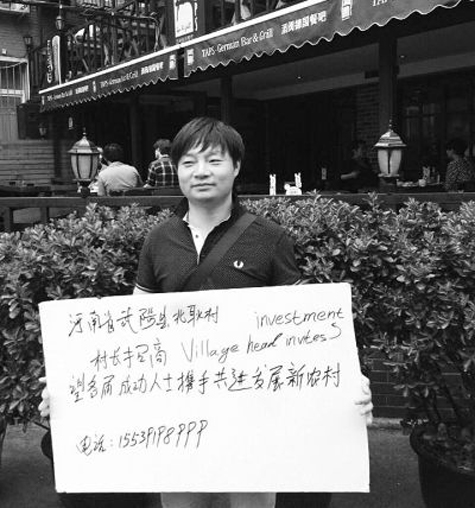 TAPS German Bar & Grill
TAPS German Bar & Grill
河南省武陽县北耿村 investment
村长招商 Village head invites
望各届成功人士携手共进发展新农村
电话:15539198999